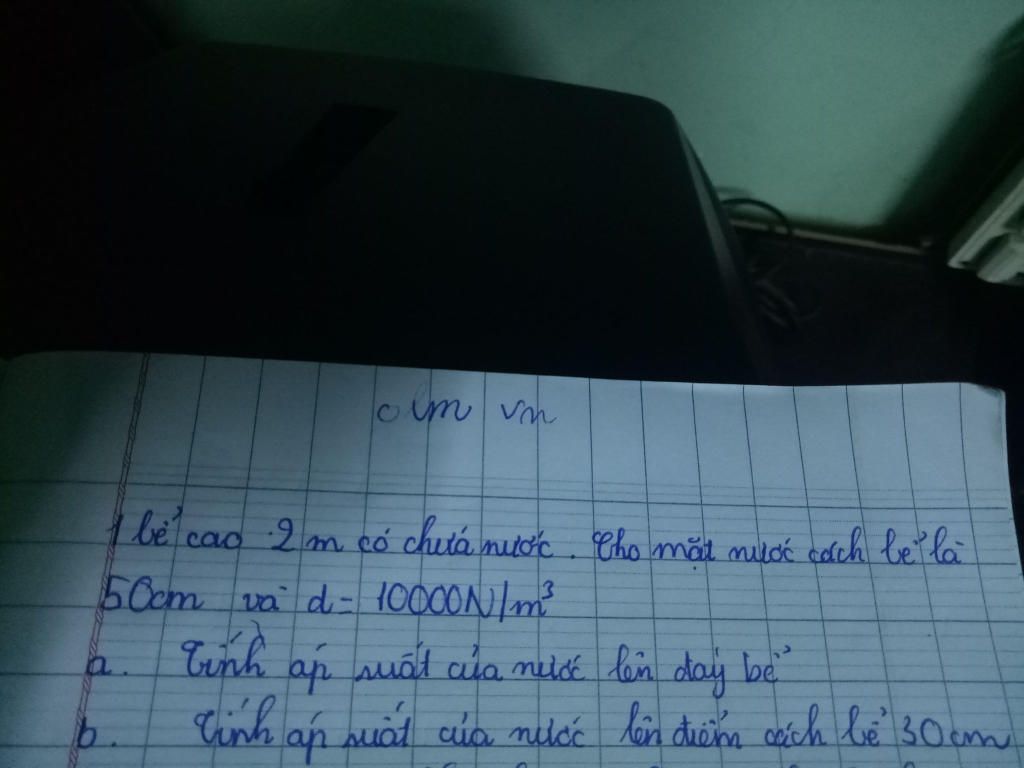 olm vn
1 bể cao 2m có chứa nước. Cho mặt nước cách bể là
50cm và d = 10000N/m³
a. Tính áp suất của nước lên đáy bể
b. Tính áp suất của nước lên điểm cách bể 30cm